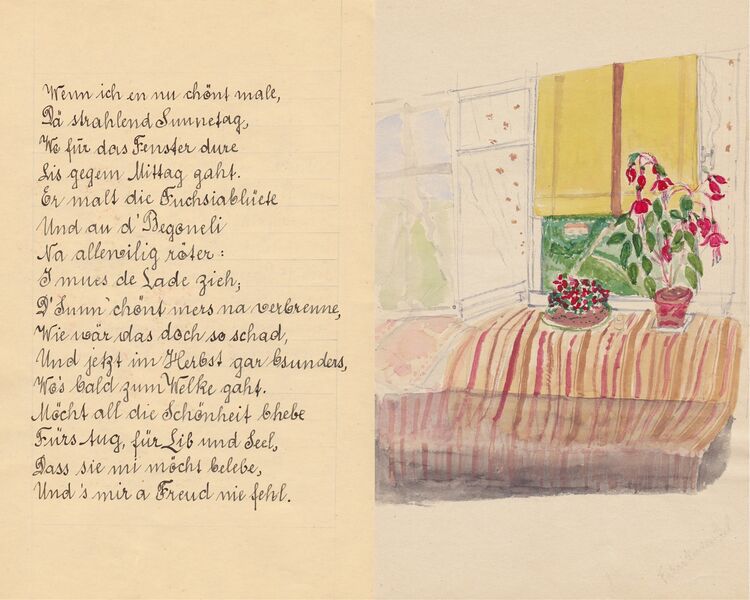 Wenn ich en nu chönt male,
Dä strahlend Sunnetag,
Wo für das Fenster dure
Lis gegem Mittag gaht.
Er malt die Fuchsiablüete
Und au d'Begoneli
Na allewilig röter:
I mues de Lade zieh,
D'Sunn' chönt mers na verbrenne,
Wie wär das doch so schad,
Und jetzt im Herbst gar bsunders,
Wo's bald zum Welke gaht.
Möcht all die Schönheit bhebe
Fürs Aug, für Lib und Seel,
Dass sie mi möcht belebe,
Und's mir a Freud nie fehl.